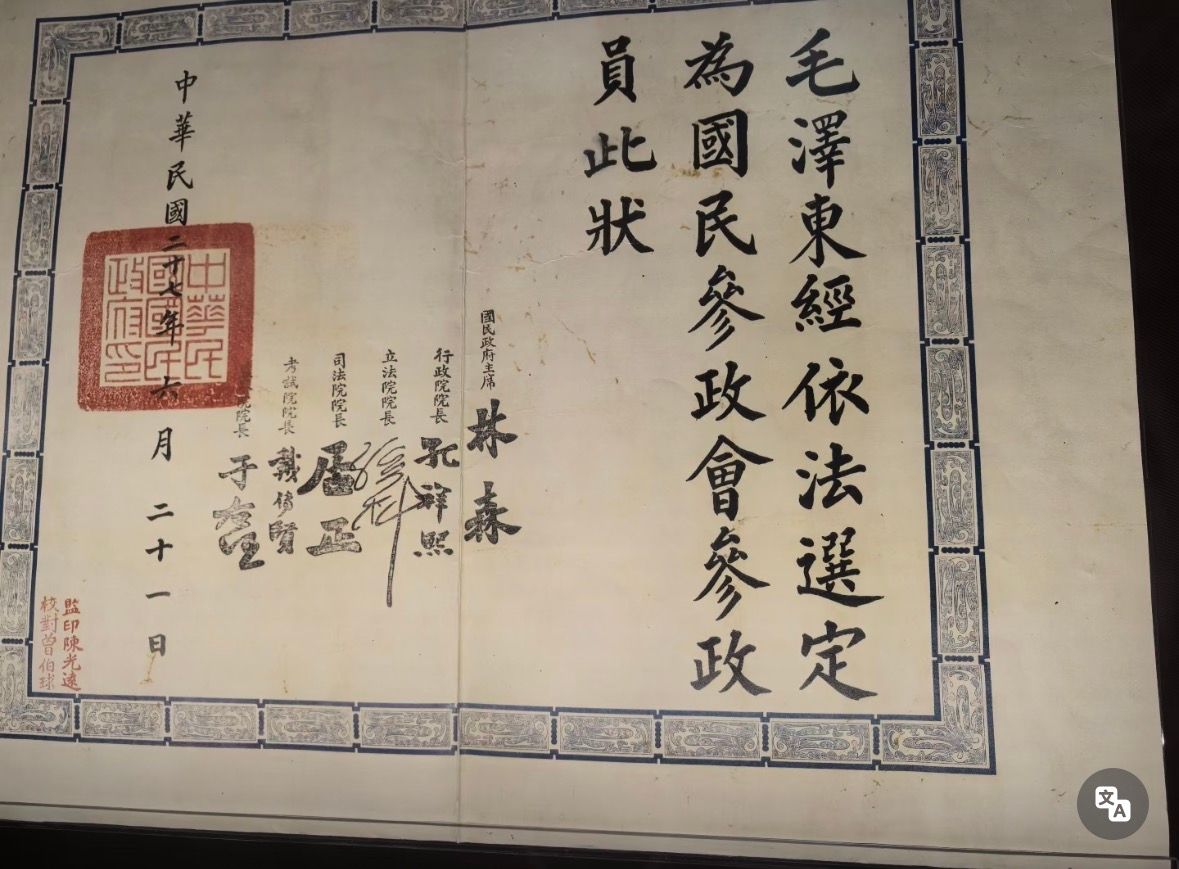 毛澤東經依法選定
為國民參政會參政
員此狀
國民政府主席 林森
行政院院長 孔祥熙
立法院院長 孫科
司法院院長 居正
考試院院長 戴傳賢
院院長 于右任
中華民國二十七年六月二十一日
中華民
國國民
政府印
監印陳光遠
校對曾伯球